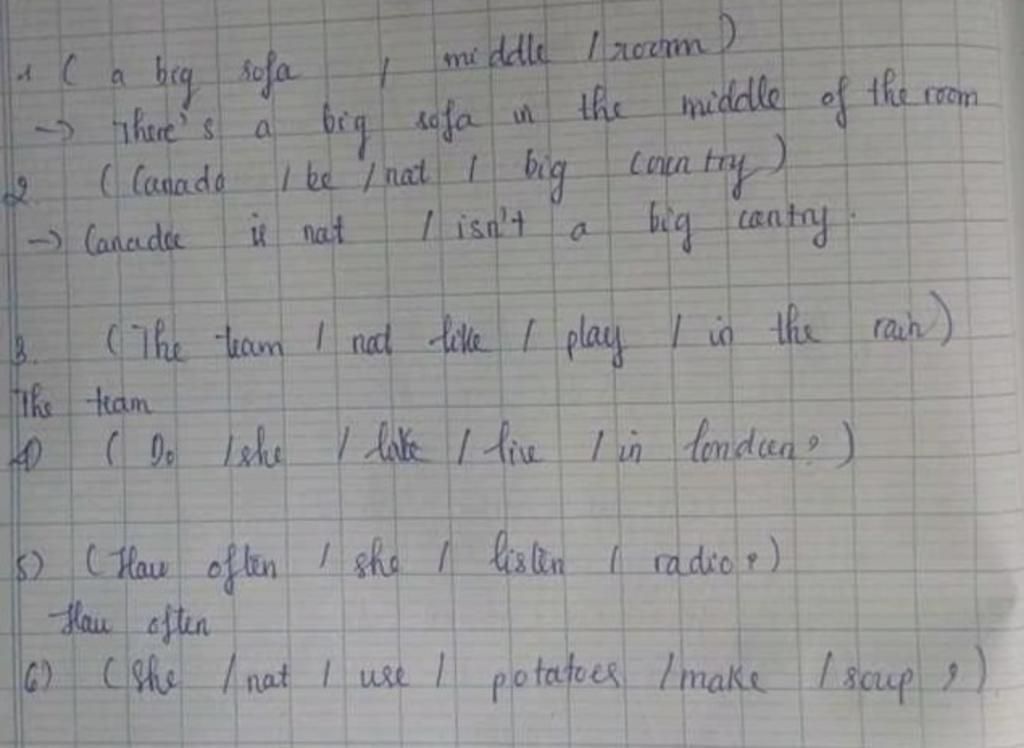 1 ( a big sofa / middle / room )
→ There's a big sofa in the middle of the room
2 ( Canada / be / not / big country )
→ Canada is not / isn't a big cantry.
3. ( The team / not like / play / in the rain )
The team
4) ( Do / she / like / live / in London ? )
5) ( How often / she / listen / radio ? )
How often
6) ( She / not / use / potatoes / make / soup ? )